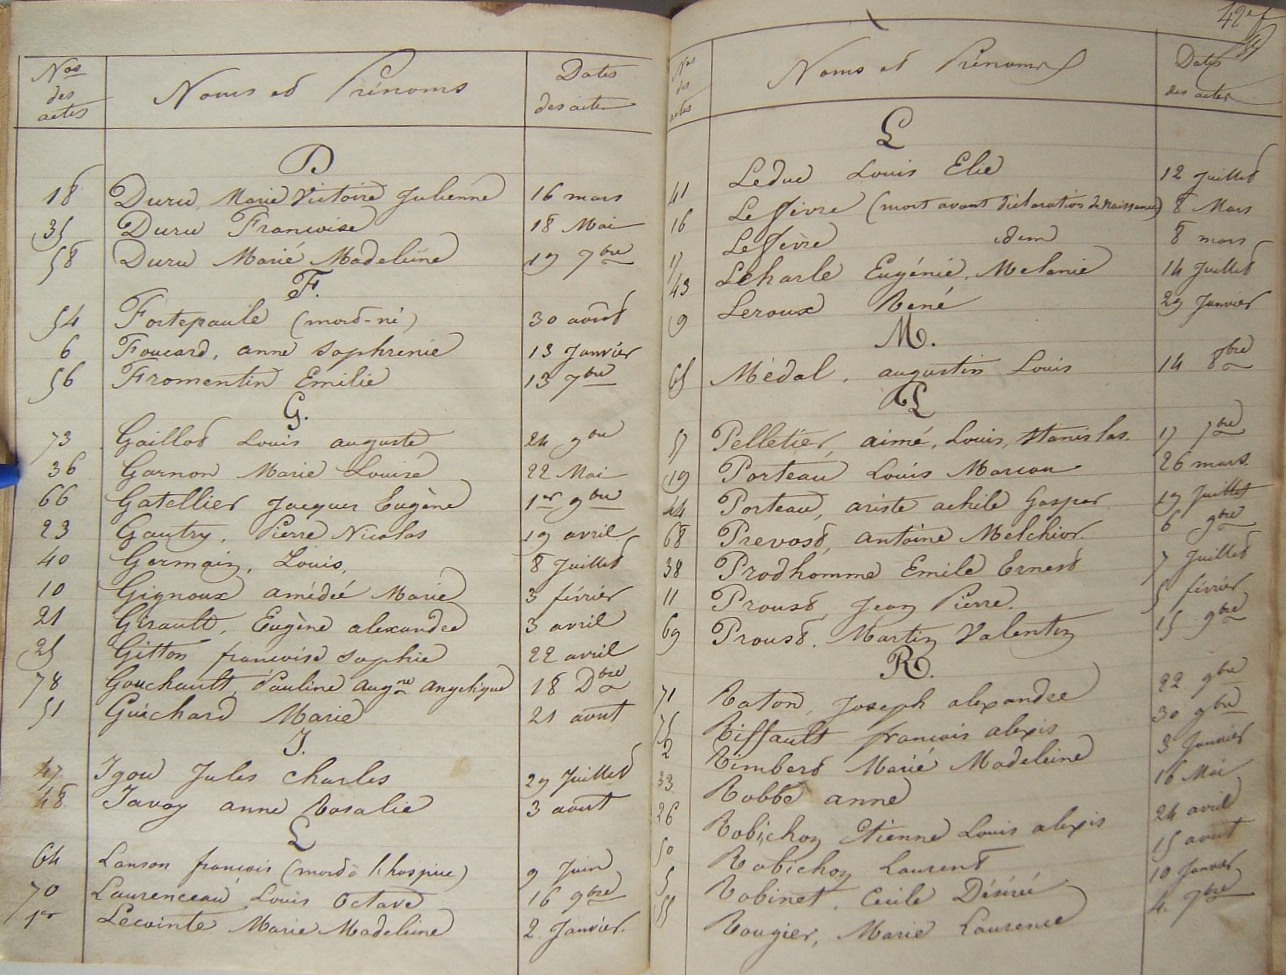 Nos des actes Noms et Prénoms Dates des actes
D
18 Duru Marie Victoire Julienne 16 mars
35 Duru Francoise 18 Mai
58 Duru Marie Madeleine 19 7bre
F.
54 Fortepaule (mort-né) 30 août
6 Foucard, anne Sophrenie 13 Janvier
56 Fromentin Emilie 13 7bre
G.
73 Gaillot Louis auguste 24 9bre
36 Garnon Marie Louise 22 Mai
66 Gatellier Jacques Eugène 1er 9bre
23 Gautry, Pierre Nicolas 19 avril
40 Germain, Louis, 8 Juillet
10 Gignoux amédée Marie 3 février
21 Girault, Eugène alexandre 3 avril
25 Gitton francoise Sophie 22 avril
78 Gouchault, Pauline Augne Angelique 18 Dbre
51 Guichard Marie 21 aout
J.
47 Igou Jules Charles 29 Juillet
48 Javoy anne Rosalie 3 aout
L
64 Lanson francois (mort à l'hospice) 9 Juin
70 Laurenceau Louis Octave 16 9bre
1er Lecointe Marie Madeleine 2 Janvier.
42
Nos des actes Noms et Prénoms Dates des actes
L
41 Leduc Louis Elie 12 Juillet
16 Lefèvre (mort avant déclaration de Naissance) 8 Mars
17 Lefèvre idem 8 mars
43 Leharle Eugénie, Melanie 14 Juillet
9 Leroux René 29 Janvier
M.
65 Médal, augustin Louis 14 8bre
P
57 Pelletier, aimé, Louis, Stanislas 17 7bre
19 Porteau Louis Marcou 26 mars.
44 Porteau, ariste achile Gaspar 19 Juillet
68 Prevost, antoine Melchior. 6 9bre
38 Prodhomme Emile Ernest 7 Juillet
11 Proust, Jean Pierre. 5 février
69 Proust, Martin Valentin 15 9bre
R.
71 Raton, Joseph alexandre 22 9bre
75 Riffault francois alexis 30 9bre
2 Rimbert Marie Madeleine 3 Janvier
33 Robbé anne 16 Mai
26 Robichon Etienne Louis alexis 24 avril
50 Robichon Laurent 15 aout
5 Robinet, Cecile Désirée 10 Janvier
55 Rougier, Marie Laurence 4. 7bre